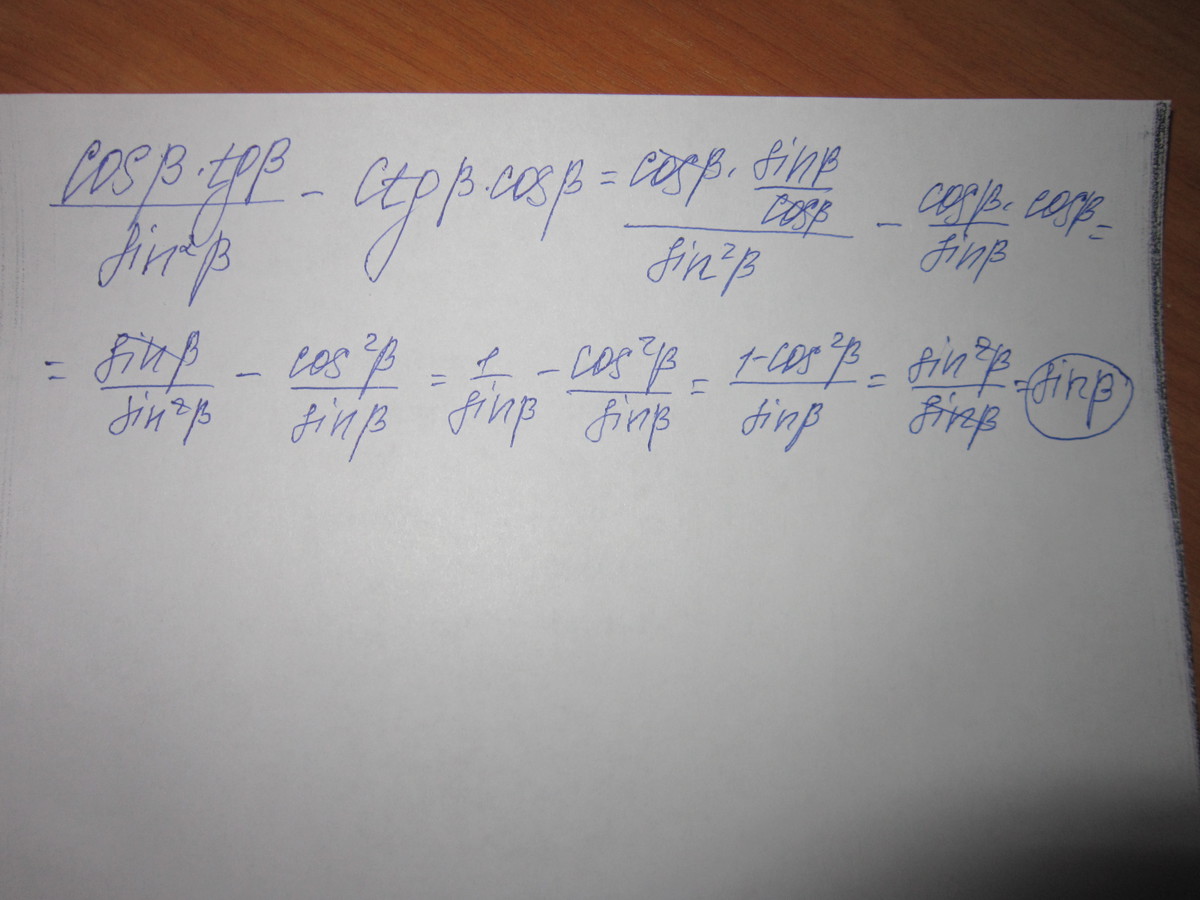 cosβ·tgβ/sin²β - ctgβ·cosβ = (cosβ·sinβ/cosβ)/sin²β - cosβ/sinβ·cosβ =
= sinβ/sin²β - cos²β/sinβ = 1/sinβ - cos²β/sinβ = 1-cos²β/sinβ = sin²β/sinβ = sinβ